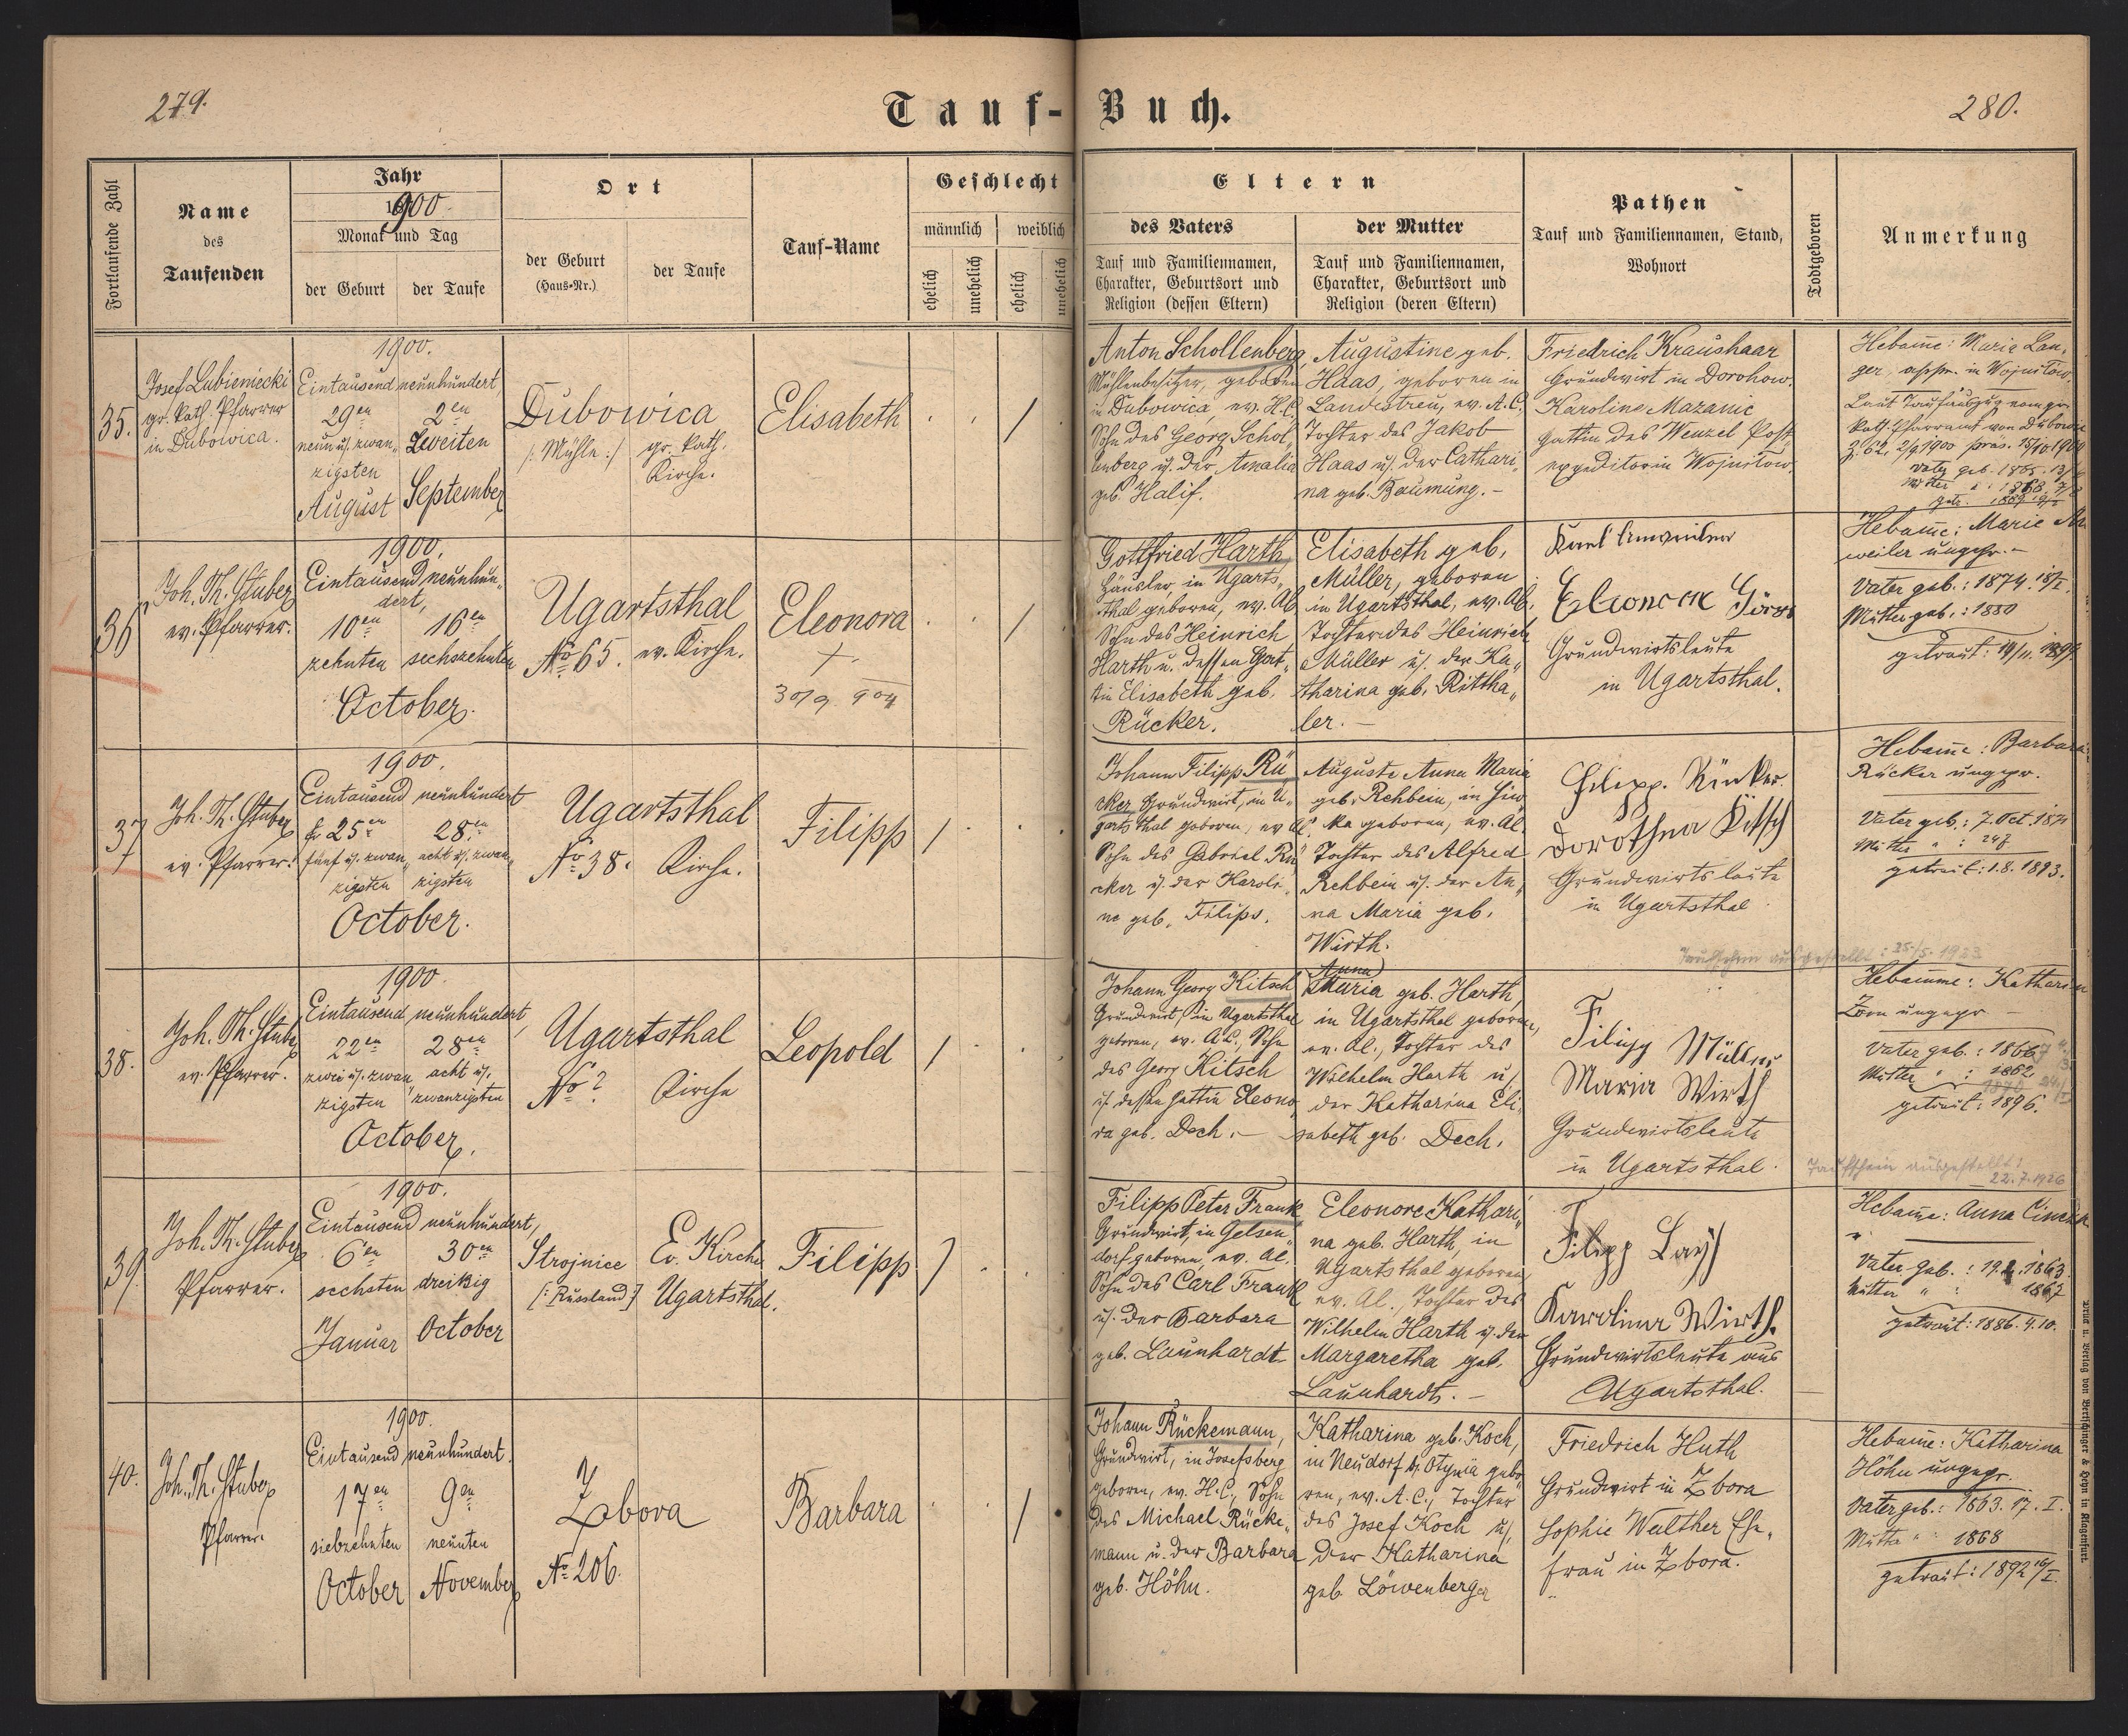 279.
Tauf-Buch.
280.
Fortlaufende Zahl
Name
des
Taufenden
Jahr
1900
Monat und Tag
der Geburt
der Taufe
Ort
der Geburt
(Haus-Nr.)
der Taufe
Tauf-Name
Geschlecht
männlich
weiblich
ehelich
unehelich
ehelich
unehelich
Eltern
des Vaters
Tauf und Familiennamen,
Charakter, Geburtsort und
Religion (dessen Eltern)
der Mutter
Tauf und Familiennamen,
Charakter, Geburtsort und
Religion (deren Eltern)
Pathen
Tauf und Familiennamen, Stand,
Wohnort
Todtgeboren
Anmerkung
35.
Josef Lubieniecki
gr. kath. Pfarrer
in Dubowica.
1900.
Eintausend neunhundert,
29en
neun u. zwan„
zigsten
August
2en
Zweiten
September
Dubowica
/: Mühle :/
gr. kath.
Kirche.
Elisabeth
/
Anton Schollenberg,
Mühlenbesitzer, geboren
in Dubowica, ev. H.C.
Sohn des Georg Schol„
lenberg u. der Amalia
geb. Halif.
Augustine geb.
Haas, geboren in
Landestreu, ev. A.C.
Tochter des Jakob
Haas u. der Cathari„
na geb. Baumung. -
Friedrich Kraushaar
Grundwirt in Dorohow.
Karoline Mazanic
Gattin des Wenzel Post„
expeditor in Wojnitow.
Hebame: Marie Lan„
ger, appr. in Wojnitow.
Laut Taufauszug vom gr.
kath. Pfarramt von Dubowica
Z. 62, 2/9 1900 präs. 15/10. 1900
Vater geb. 1865.
Mutter " : 1868.
36
Joh. Th. Stuber
ev. Pfarrer.
1900.
Eintausend neunhun„
dert,
10en
zehnten
16en
sechszehnten
October.
Ugartsthal
No 65.
ev. Kirche.
Eleonora
+
30/9. 904
/
Gottfried Harth,
Häusler, in Ugarts„
thal geboren, ev. AC
Sohn des Heinrich
Harth u. dessen Gat„
tin Elisabeth geb.
Rücker.
Elisabeth geb.
Müller, geboren
in Ugartsthal, ev. AC.
Tochter des Heinrich
Müller u. der Ka„
tharina geb. Rittha„
ler. -
Karl Anweiler
Eleonore
Grundwirtsleute
in Ugartsthal.
Hebame: Marie An
weiler ungepr. -
Vater geb.: 1874.
Mutter geb.: 1880
getraut: 14/11. 1897
37
Joh. Th. Stuber
ev. Pfarrer.
1900.
Eintausend neunhundert
25en
fünf u. zwan„
zigsten
28.en
acht u. zwan„
zigsten
October.
Ugartsthal
No 38.
Kirche.
Filipp
/
Johann Filipp Rü„
cker, Grundwirt, in U„
gartsthal geboren, ev AC.
Sohn des Gabriel Rü„
cker u. der Karoli„
ne geb. Filips.
Auguste Anna Maria
geb. Rehbein, in
geboren, ev. AC.
Tochter des Alfred
Rehbein u. der An„
na Maria geb.
Wirth.
Filipp Rücker.
Dorothea Kitsch
Grundwirtsleute
in Ugartsthal.
Hebame: Barbara
Rücker ungepr.
Vater geb.: 7. Oct. 1871
Mutter " :
getraut: 1.8. 1893.
Taufschein ausgestellt: 25/5. 1923
38.
Joh. Th. Stuber
ev. Pfarrer.
1900
Eintausend neunhundert,
22en
zwei u. zwan„
zigsten
28en
acht u.
zwanzigsten
October.
Ugartsthal
No ?
Kirche
Leopold
/
Johann Georg Kitsch
Grundwirt, in Ugartsthal
geboren, ev. A.C., Sohn
des Georg Kitsch
u. dessen Gattin Eleono„
ra geb. Dech. -
Anna
Maria geb. Harth,
in Ugartsthal geboren,
ev. AC., Tochter des
Wilhelm Harth u.
der Katharina Eli„
sabeth geb. Dech.
Filipp Müller
Maria Wirth
Grundwirtsleute
in Ugartsthal.
Hebamme: Katharin
Zorn ungepr -
Vater geb.: 1866
Mutter " : 1862
getraut: 1896.
Taufschein ausgestellt:
22.7.1926
39.
Joh. Th. Stuber
Pfarrer.
1900.
Eintausend neunhundert,
6en
sechsten
Januar
30en
dreißig
October
Strojnice
[: Russland :]
Ev. Kirche
Ugartsthal.
Filipp
/
Filipp Peter Frank
Grundwirt, in Gelsen„
dorf geboren, ev. AC.
Sohn des Carl Frank
u. der Barbara
geb. Launhardt
Eleonore Kathari„
na geb. Harth, in
Ugartsthal geboren,
ev. AC., Tochter des
Wilhelm Harth u. der
Margaretha geb.
Launhardt. -
Filipp Lay
Karolina Wirth.
Grundwirtsleute aus
Ugartsthal.
Hebame: Anna
Vater geb.: 19.2.1863.
Mutter " : 1867
getraut: 1886. 4.10.
40.
Joh. Th. Stuber
Pfarrer.
1900.
Eintausend neunhundert.
17en
siebzehnten
October
9en
neunten
November
Zbora
No 206.
Barbara
/
Johann Rückemann,
Grundwirt, in Josefsberg
geboren, ev. H.C., Sohn
des Michael Rücke„
mann u. der Barbara
geb. Höhn.
Katharina geb. Koch,
in Neudorf b. Otynia gebo„
ren, ev. A.C., Tochter
des Josef Koch u.
der Katharina
geb. Löwenberger
Friedrich Huth
Grundwirt in Zbora
Sophie Walther Ehe„
frau in Zbora.
Hebame: Katharina
Höhn ungepr.
Vater geb.: 1863. 17. I.
Mutter " " 1868
getraut: 1892 16/I.
Druck u. Verlag von Bertschinger & Heyn in Klagenfurt.